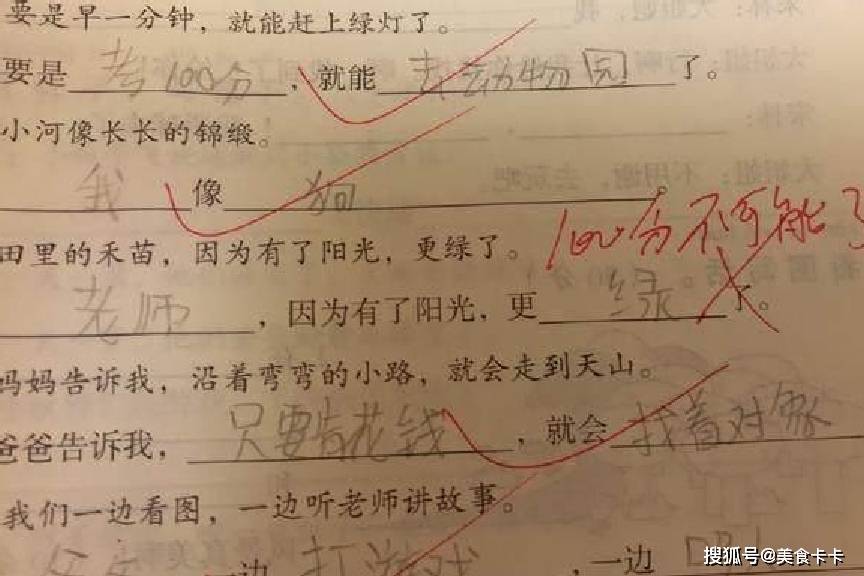 要是早一分钟，就能赶上绿灯了。
要是考100分，就能去动物园了。
小河像长长的锦缎。
我像狗
田里的禾苗，因为有了阳光，更绿了。
100分不可能了
老师，因为有了阳光，更绿了。
妈妈告诉我，沿着弯弯的小路，就会走到天山。
爸爸告诉我，只要肯花钱，就会找着对象
我们一边看图，一边听老师讲故事。
一边打游戏，一边
搜狐号@美食卡卡